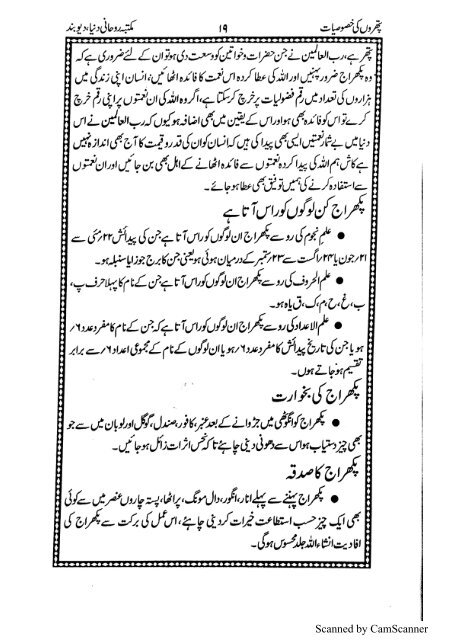 پتھروں کی خصوصیات ۱۹ مکتبہ روحانی دنیا، دیوبند
پتھر ہے، رب العالمین نے جن حضرات و خواتین کو وسعت دی ہو تو ان کے لئے ضروری ہے کہ
وہ پکھراج ضرور پہنیں اور اللہ کی عطا کردہ اس نعمت کا فائدہ اٹھائیں، انسان اپنی زندگی میں
ہزاروں کی تعداد میں رقم فضولیات پر خرچ کر سکتا ہے، اگر وہ اللہ کی ان نعمتوں پر اپنی رقم خرچ
کرے تو اس کو فائدہ بھی ہو اور اس کے یقین میں بھی اضافہ ہو کیوں کہ رب العالمین نے اس
دنیا میں بے شمار نعمتیں ایسی بھی پیدا کی ہیں کہ انسان کو ان کی قدر و قیمت کا آج بھی اندازہ نہیں
ہے کاش ہم اللہ کی پیدا کردہ نعمتوں سے فائدہ اٹھانے کے اہل بھی بن جائیں اور ان نعمتوں
سے استفادہ کرنے کی ہمیں توفیق بھی عطا ہو جائے۔
پکھراج کن لوگوں کو راس آتا ہے
● علم نجوم کی رو سے پکھراج ان لوگوں کو راس آتا ہے جن کی پیدائش ۲۲؍مئی سے
۲۱؍جون یا ۲۴؍اگست سے ۲۳؍ستمبر کے درمیان ہوئی ہو یعنی جن کا برج جوزا یا سنبلہ ہو۔
● علم الحروف کی رو سے پکھراج ان لوگوں کو راس آتا ہے جن کے نام کا پہلا حرف پ،
ب، غ، ح، م، ک، ق یا ہ ہو۔
● علم الاعداد کی رو سے پکھراج ان لوگوں کو راس آتا ہے کہ جن کے نام کا مفرد عدد ۶؍
ہو یا جن کی تاریخ پیدائش کا مفرد عدد ۶؍ہو یا ان لوگوں کے نام کے مجموعی اعداد ۶؍سے برابر
تقسیم ہو جاتے ہوں۔
پکھراج کی بخورات
● پکھراج کو انگوٹھی میں جڑوانے کے بعد عنبر، کافور، صندل، گوگل اور لوبان میں سے جو
بھی چیز دستیاب ہو اس سے دھونی دینی چاہئے تاکہ نحس اثرات زائل ہو جائیں۔
پکھراج کا صدقہ
● پکھراج پہننے سے پہلے انار، انگور، دال مونگ، پراٹھا، پستہ چاروں عنصر میں سے کوئی
بھی ایک چیز حسب استطاعت خیرات کر دینی چاہئے، اس عمل کی برکت سے پکھراج کی
افادیت انشاء اللہ جلد محسوس ہوگی۔
Scanned by CamScanner